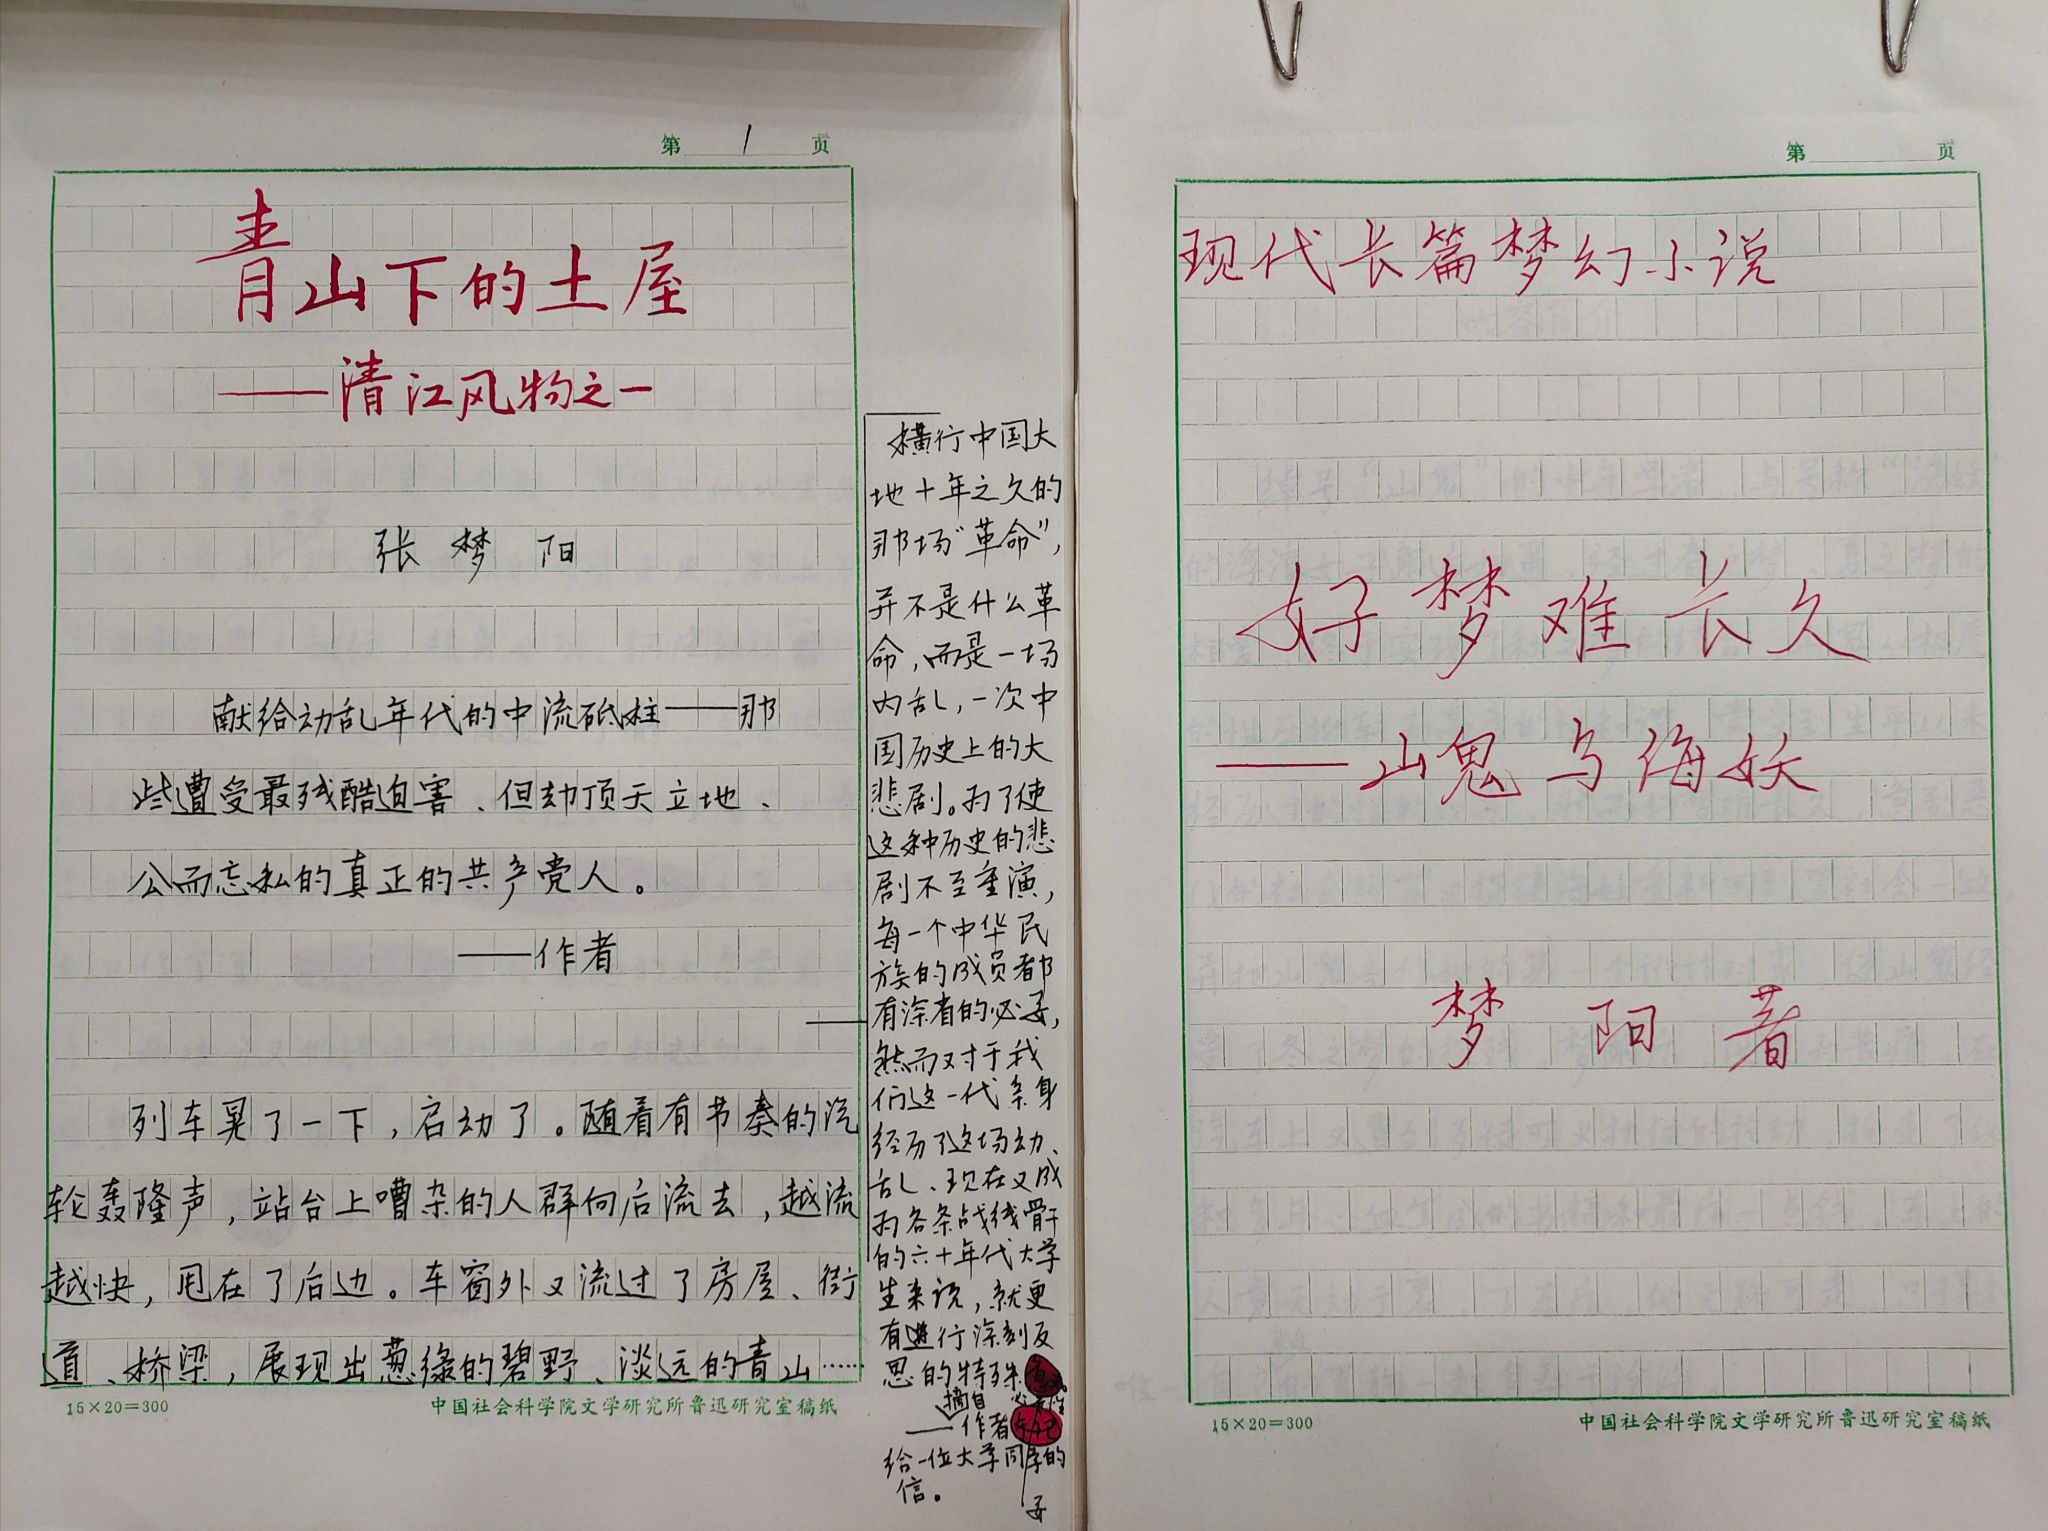 第 1 页
青山下的土屋
——清江风物之一
张梦阳
献给动乱年代的中流砥柱——那
些遭受最残酷迫害、但却顶天立地、
公而忘私的真正的共产党人。
——作者
列车晃了一下，启动了。随着有节奏的汽
轮轰隆声，站台上嘈杂的人群向后流去，越流
越快，甩在了后边。车窗外又流过了房屋、街
道、桥梁，展现出葱绿的碧野、淡远的青山……
15×20=300
中国社会科学院文学研究所鲁迅研究室稿纸
横行中国大
地十年之久的
那场“革命”，
并不是什么革
命，而是一场
内乱，一次中
国历史上的大
悲剧。为了使
这种历史的悲
剧不至重演，
每一个中华民
族的成员都
有深省的必要，
然而对于我
们这一代亲身
经历了这场动
乱、现在又成
为各条战线骨干
的六十年代大学
生来说，就更
有进行深刻反
思的特殊
必要性
——摘自作者
给一位大学同学的
信。
第 页
现代长篇梦幻小说
好梦难长久
——山鬼与海妖
梦阳著
15×20=300
中国社会科学院文学研究所鲁迅研究室稿纸